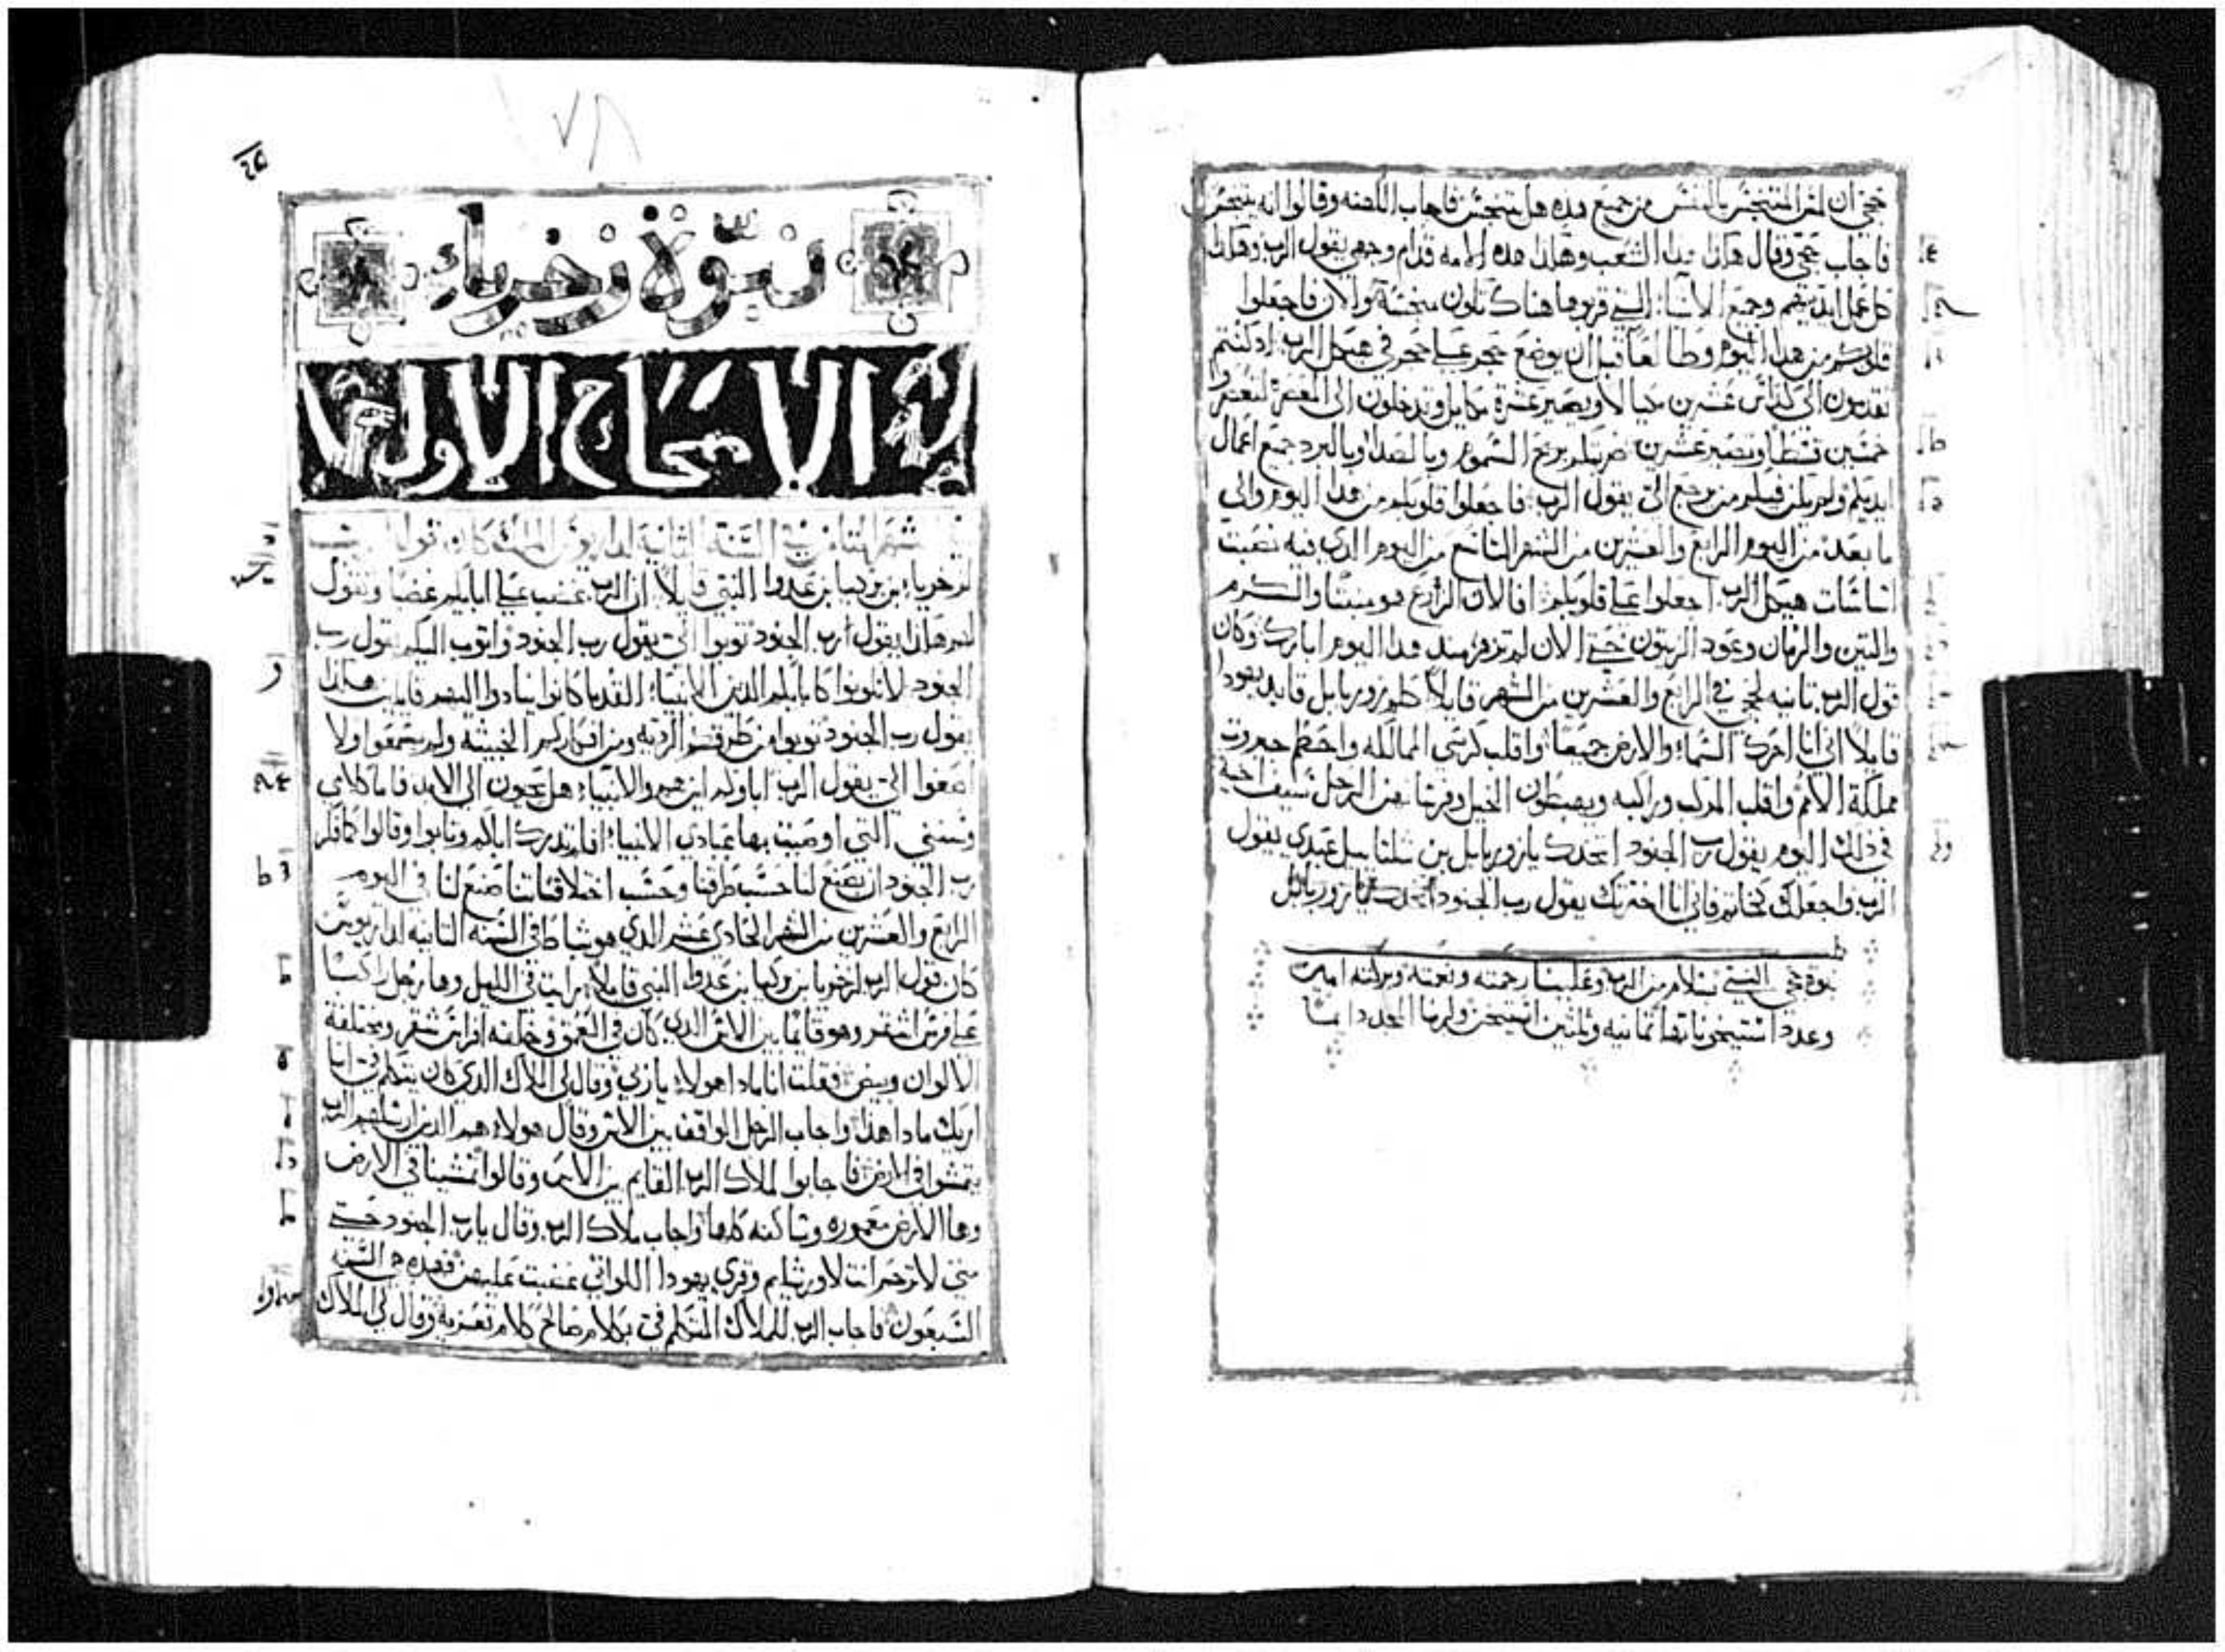 حجي ان لمس المتنجس بالنفس من جميع هذه هل يتنجس فاجاب الكهنه وقالوا انه يتنجس
فاجاب حجي وقال هكذا هذا الشعب وهكذا هذه الامه قدام وجهي يقول الرب وهكذا
كل عمل ايديهم وجميع الاشيا التي قربوها هناك تكون منجسة والان فاجعلوا
قلوبكم من هذا اليوم وطالعا قبل ان يوضع حجر على حجر في هيكل الرب اذ كنتم
تقدمون الى كداس عشرين مكيالا ويصير عشرة مكاييل وتدخلون الى المعصر لتعصروا
خمسين قسطا وتصير عشرين ضربتكم بريح السموم وبالصدا وبالبرد جميع اعمال
ايديكم ولم يكن فيكم من يرجع الي يقول الرب فاجعلوا قلوبكم من هذا اليوم والى
ما بعد من اليوم الرابع والعشرين من الشهر التاسع من اليوم الدي فيه نصبت
اساسات هيكل الرب اجعلوا على قلوبكم افالان الزرع هو مبتدا والكرم
والتين والرمان وعود الزيتون حتى الان لم تزهر منذ هذا اليوم ابارك وكان
قول الرب ثانيه لحجي في الرابع والعشرين من الشهر قايلا كلم زوربابل قايد يهودا
قايلا اني انا احرك السماء والارض جميعا واقلب كرسي الممالك واحطم جبروت
مملكة الامم واقلب المركب وراكبه ويهبطون الخيل وفرسانهن الرجل بسيف اخيه
في ذلك اليوم يقول رب الجنود اتخدك يا زوربابل بن شلتاييل عبدي يقول
الرب واجعلك كخاتم فاني انا اخترتك يقول رب الجنود
نبوة حجي النبي بسلام من الرب وعلينا رحمته ونعمته وبركته امين
وعدد استيخوناتها ثمانيه وثلثين استيخن ولربنا المجد دايما
نبوّة زخرياء
الاصحاح الاول
في الشهر الثامن في السنة الثانية لداريوس الملك كان قول الرب
لزخرياء بن بركيا بن عدوا النبي قايلا ان الرب غضب على ابايكم غضبا وتقول
لهم هكذا يقول رب الجنود توبوا الي يقول رب الجنود واتوب اليكم يقول رب
الجنود لا تكونوا كابايكم الدين الانبياء القدما كانوا ينادوا اليهم قايلين هكذا
يقول رب الجنود توبوا من طرقكم الرديه ومن افكاركم الخبيثه ولم يسمعوا ولا
اصغوا الي يقول الرب اباوكم اين هم والانبياء هل يحيون الى الابد فاما كلامي
وسنني التي اوصيت بها عبادي الانبياء افلم تدرك اباكم وتابوا وقالوا كما فكر
رب الجنود ان يصنع لنا حسب طرقنا وحسب اختلاقاتنا صنع لنا في اليوم
الرابع والعشرين من الشهر الحادي عشر الدي هو شباط في السنه الثانيه لداريوس
كان قول الرب لزخريا بن بركيا بن عدوا النبي قايلا رايت في الليل وها رجل راكبا
على فرس اشقر وهو قائما بين الاس الدي كان في العمق وخلفه افراس شقر ومختلفة
الالوان وبيض فقلت انا ماذا هولاء يا ربي وقال لي الملاك الدي كان يتكلم في انا
اريك ماذا هذا واجاب الرجل الواقف بين الاس وقال هولاء هم الدين ارسلهم الرب
يتمشوا في الارض فاجابوا لملاك الرب القايم بين الاس وقالوا تمشينا في الارض
وها الارض معموره وساكنه كلها واجاب ملاك الرب وقال يا رب الجنود حتى
متى لا ترحم انت لاورشليم وقرى يهودا اللواتي غضبت عليهن فهذه هي السنه
السبعون فاجاب الرب للملاك المتكلم في بكلام صالح كلام تعزيه وقال لي الملاك